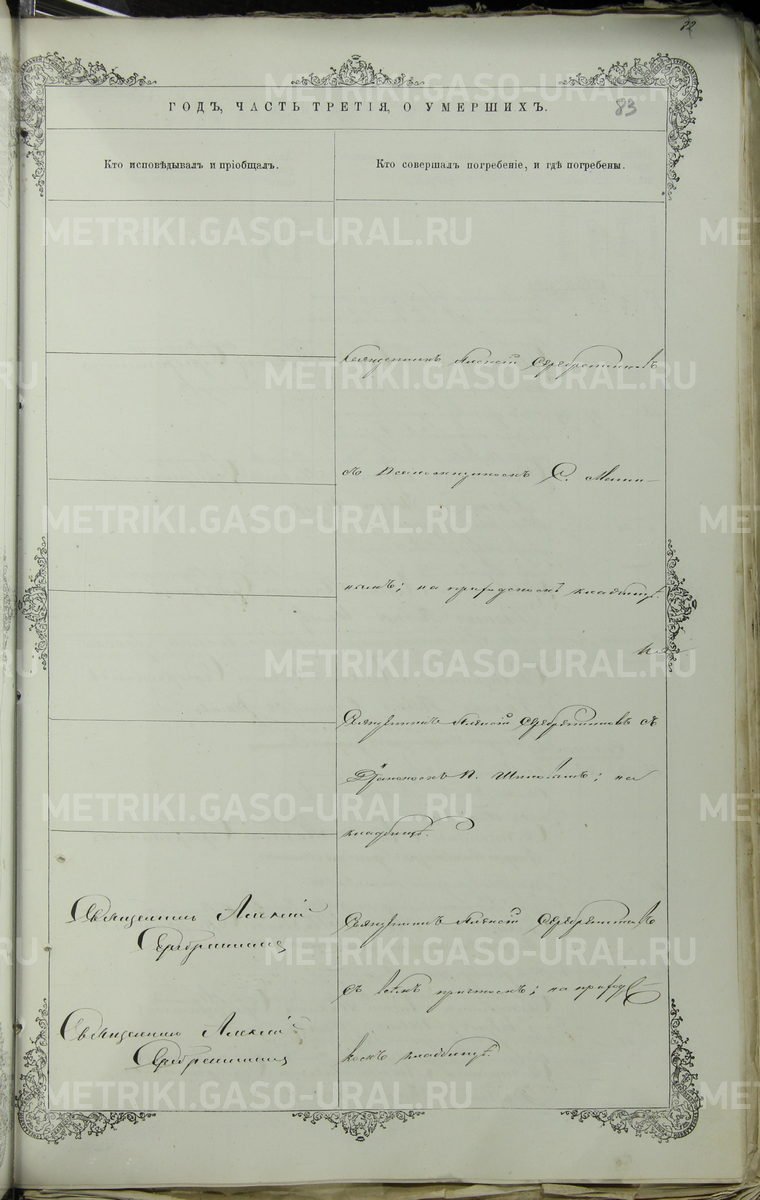 22
83
ГОДЪ, ЧАСТЬ ТРЕТІЯ, О УМЕРШИХЪ.
Кто исповѣдывалъ и пріобщалъ.
Кто совершалъ погребеніе, и гдѣ погребены.
METRIKI.GASO-URAL.RU
Священникъ Алексій Серебренниковъ
съ Псаломщикомъ С. Мами-
нымъ; на приходскомъ кладбищѣ.
Священникъ Алексій Серебренниковъ съ
Діакономъ П. на
кладбищѣ.
Священникъ Алексій
Серебренниковъ
Священникъ Алексій Серебренниковъ
съ всѣмъ причтомъ; на приход
скомъ кладбищѣ.
Священникъ Алексій
Серебренниковъ